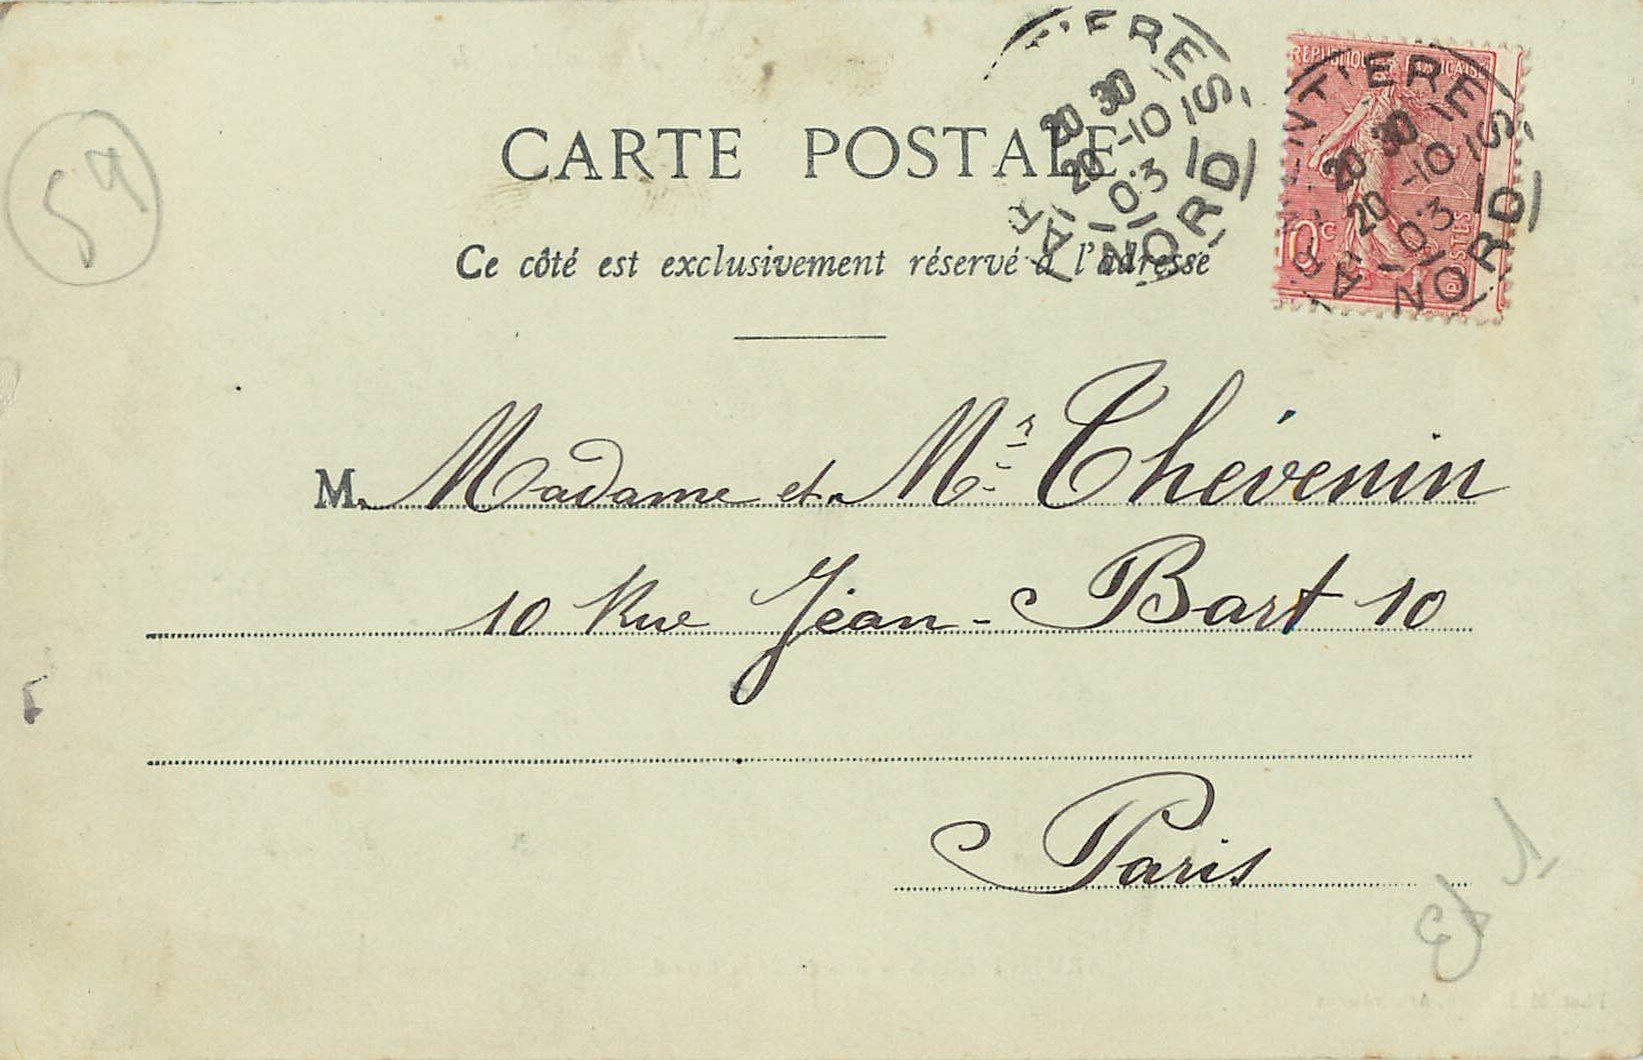 CARTE POSTALE
Ce côté est exclusivement réservé à l'adresse
RÉPUBLIQUE FRANÇAISE
10c
POSTES
20 30
20 -10
03
NORD
20 30
20 -10
03
NORD
59
M. Madame et Mr Thévenin
10 Rue Jean-Bart 10
Paris